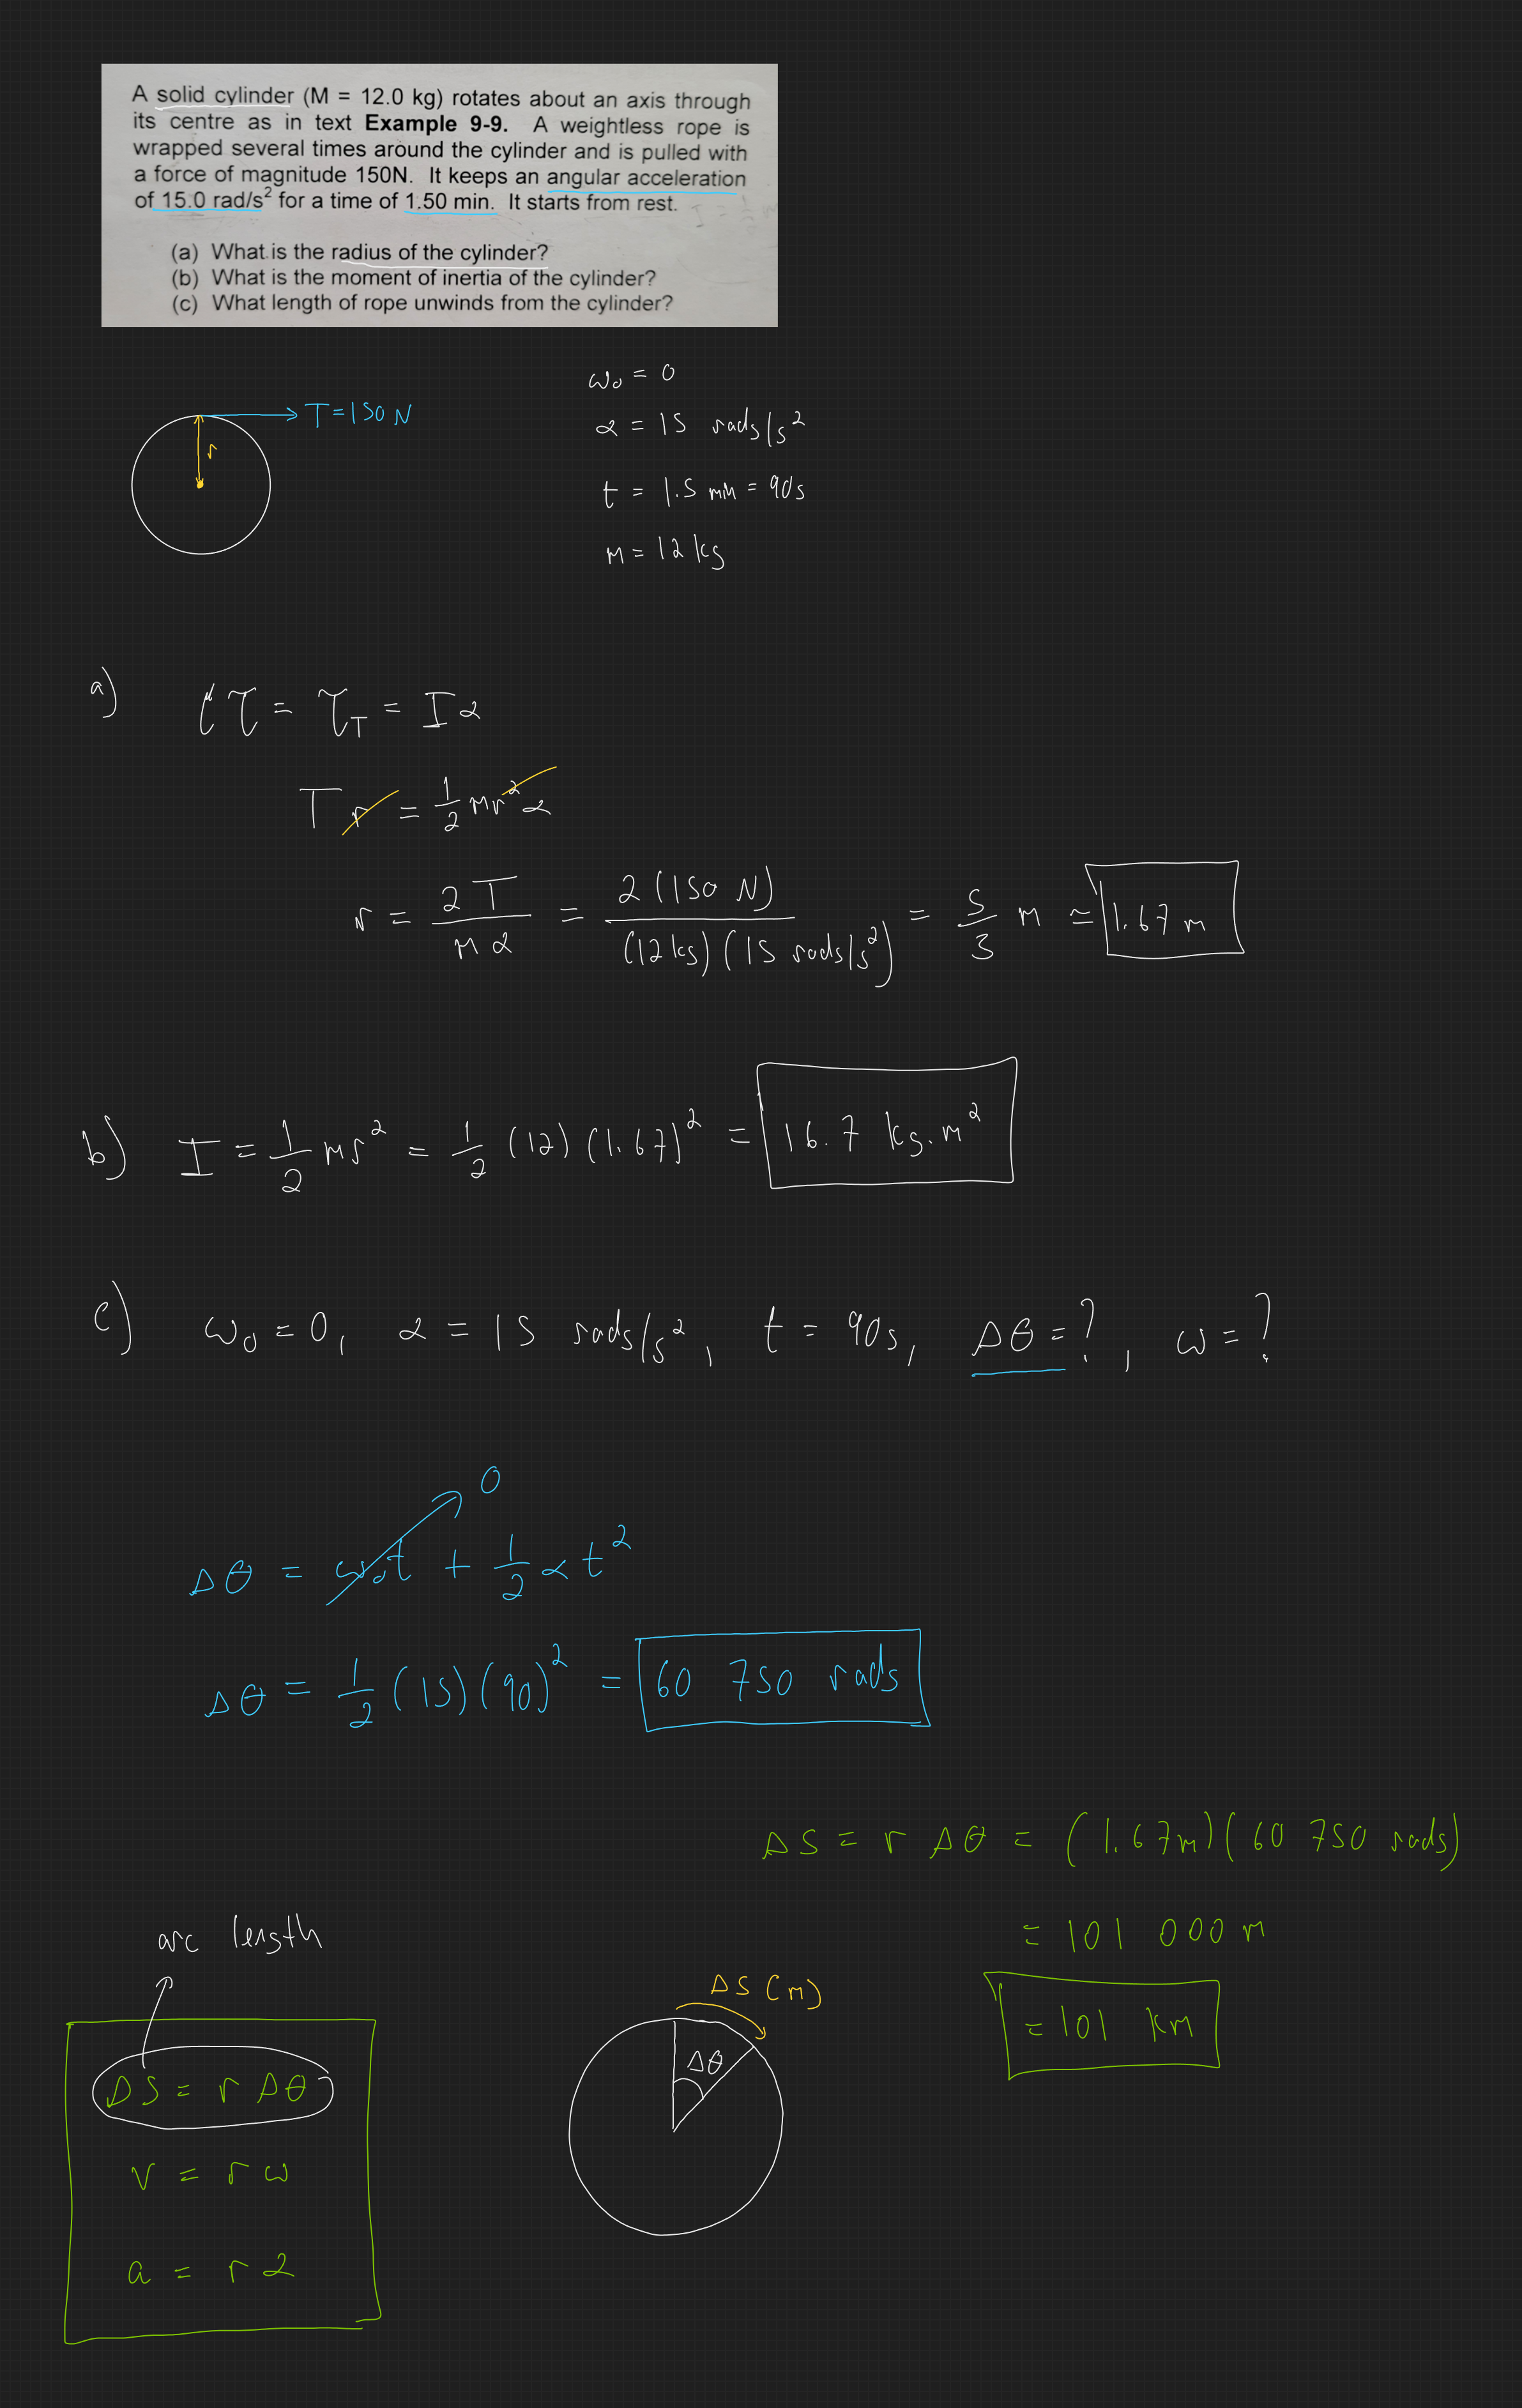 A solid cylinder (M = 12.0 kg) rotates about an axis through
its centre as in text Example 9-9. A weightless rope is
wrapped several times around the cylinder and is pulled with
a force of magnitude 150N. It keeps an angular acceleration
of 15.0 rad/s² for a time of 1.50 min. It starts from rest.
(a) What is the radius of the cylinder?
(b) What is the moment of inertia of the cylinder?
(c) What length of rope unwinds from the cylinder?
T = 150 N
r
ω₀ = 0
α = 15 rads/s²
t = 1.5 min = 90s
M = 12 kg
a)
τ = τ_T = Iα
Tr = 1/2 Mr²α
r = 2T/Mα = 2(150 N)/(12 kg)(15 rads/s²) = 5/3 m ≃ 1.67 m
b) I = 1/2 Mr² = 1/2 (12)(1.67)² = 16.7 kg.m²
c) ω₀ = 0, α = 15 rads/s², t = 90s, Δθ = ?, ω = ?
0
Δθ = ω₀t + 1/2 αt²
Δθ = 1/2 (15)(90)² = 60 750 rads
ΔS = r Δθ = (1.67m)(60 750 rads)
= 101 000 m
= 101 km
arc length
ΔS = r Δθ
v = r ω
a = r α
ΔS (m)
Δθ